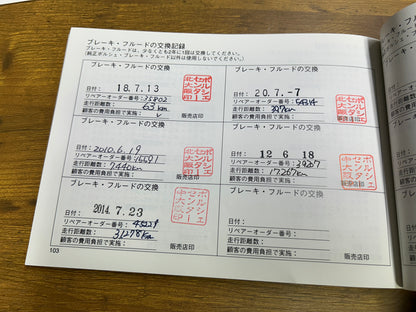 ブレーキ・フルードの交換記録
ブレーキ・フルードは、少なくとも2年に1回は交換してください。
(純正ポルシェ・ブレーキ・フルード以外は使用しないでください。)
ブレーキ・フルードの交換
日付: 18.7.13
リペアーオーダー番号: 25802
走行距離数: 63 km
顧客の費用負担で実施:
販売店印
ポルシェセンター北大阪
ブレーキ・フルードの交換
日付: 20.7.-7
リペアーオーダー番号:
走行距離数:
顧客の費用負担で実施:
販売店印
ポルシェセンター北大阪
ブレーキ・フルードの交換
日付: 2010.6.19
リペアーオーダー番号:
走行距離数: 7440km
顧客の費用負担で実施:
販売店印
ポルシェセンター北大阪
ブレーキ・フルードの交換
日付: 12 6 18
リペアーオーダー番号:
走行距離数: 17267km
顧客の費用負担で実施:
販売店印
ポルシェセンター中大阪
ブレーキ・フルードの交換
日付: 2014.7.23
リペアーオーダー番号: 45229
走行距離数: 31278km
顧客の費用負担で実施:
販売店印
ブレーキ・フルードの交換
日付:
リペアーオーダー番号:
走行距離数:
顧客の費用負担で実施:
販売店印
103